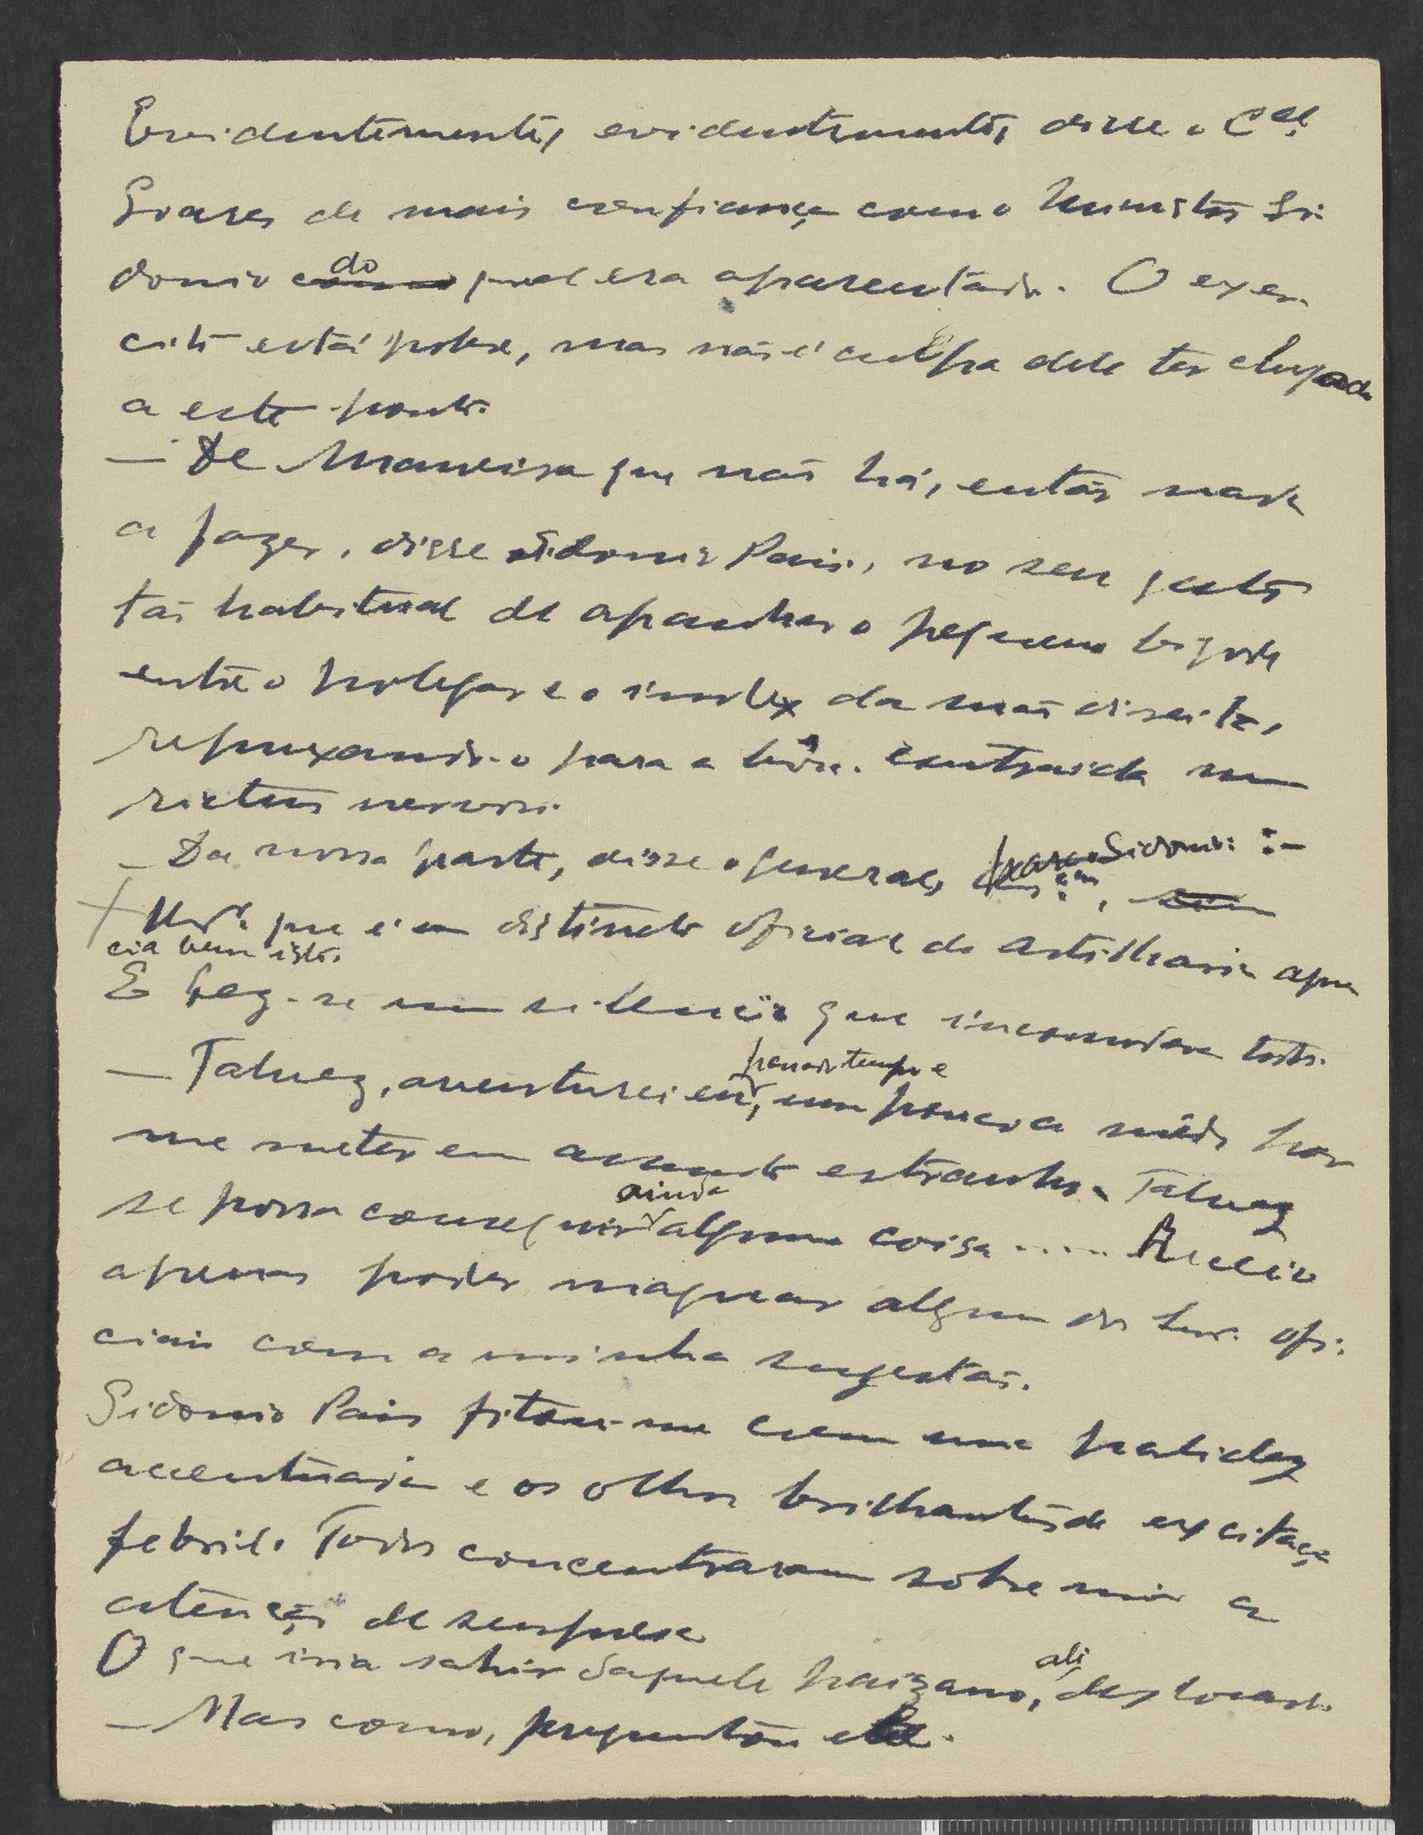 Evidentemente, evidentemente, disse o Cel
Soares de mais confiança com o Ministro Si-
donio do qual era aparentado. O exer-
cito está pobre, mas não é culpa dele ter chegado
a este ponto.
— De maneira que não há, então nada
a fazer, disse Sidonio Pais, no seu gesto
tão habitual de apanhar o pequeno bigode
entre o polegar e o index da mão direita,
repuxando-o para a bôca contraida num
rictus nervoso.
— Da nossa parte, disse o general, Sidonio: —
que é um distincto oficial de artilharia apre-
cia bem isto.
E fez-se um silencio que incomodava todos.
— Talvez, aventurei eu, passado tempo e um pouco a mêdo por
me meter em assunto estranho. Talvez
se possa conseguir ainda alguma coisa ..... Receio
apenas poder magoar algum dos Snrs. ofi-
ciais com a minha sugestão.
Sidonio Pais fitou-me com uma palidez
acentuada e os olhos brilhantes de excitação
febril. Todos concentraram sobre mim a
atenção de surpresa
O que iria sahir daquele paizano, ali, deslocado.
— Mas como, preguntou ele.